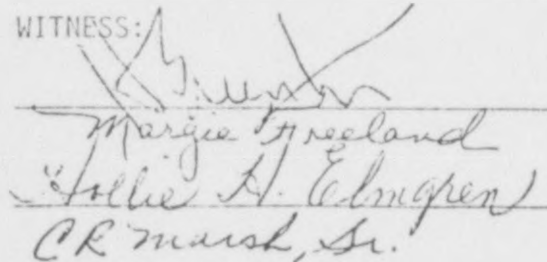 WITNESS:
Margie Freeland
Hollie H. Elmgren
CR Marsh, Sr.